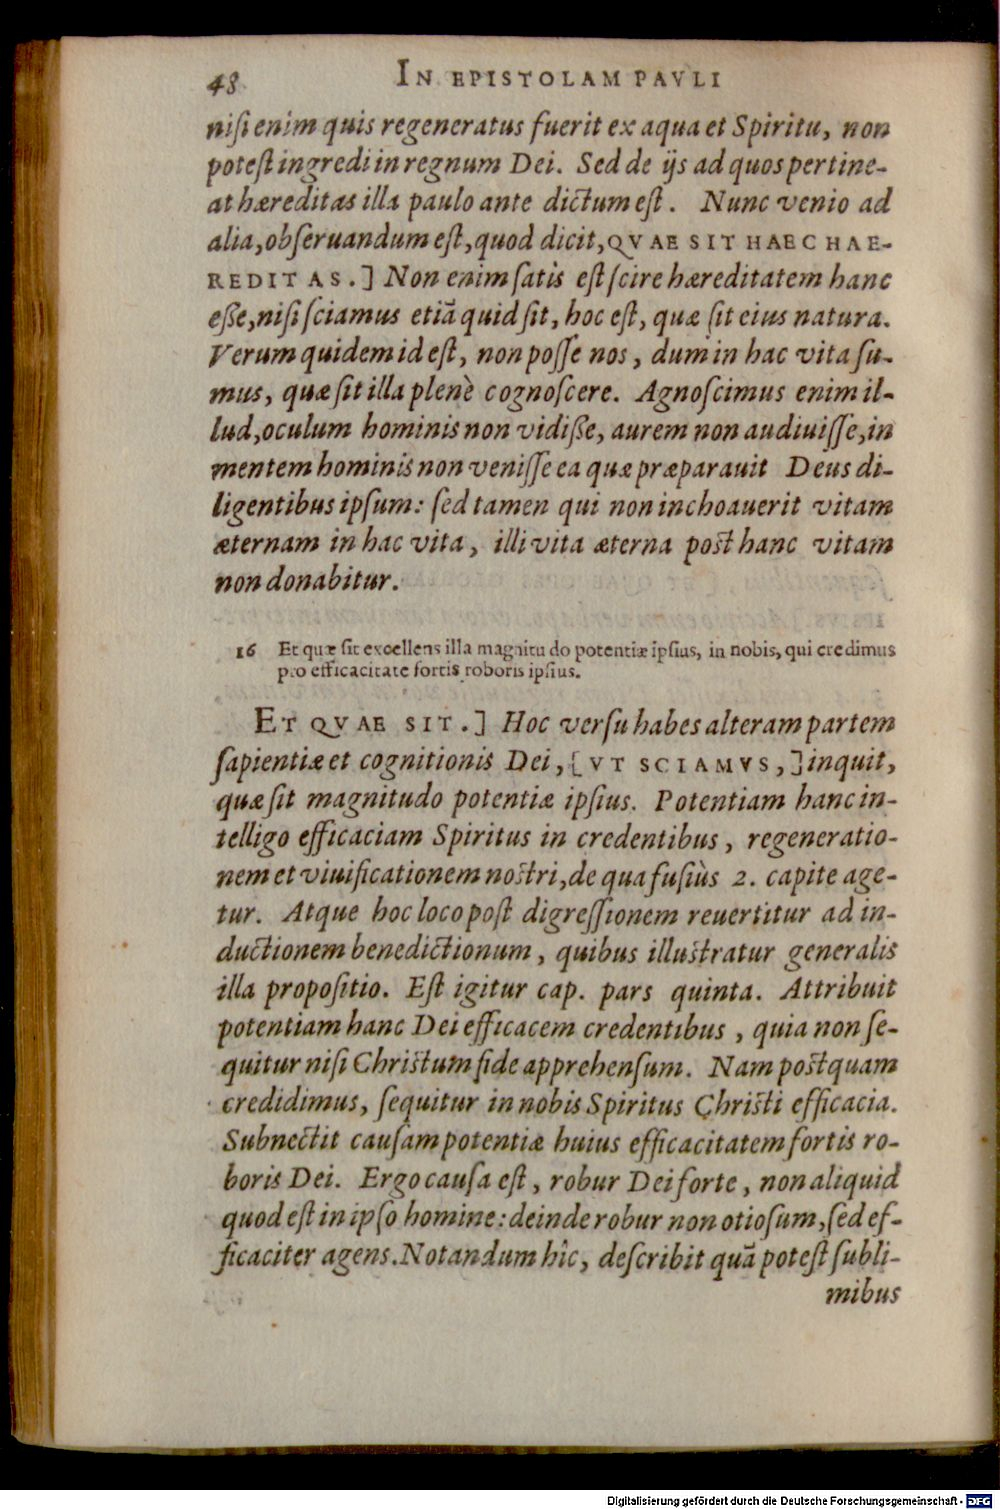 48 IN EPISTOLAM PAVLI
niſi enim quis regeneratus fuerit ex aqua et Spiritu, non
poteſt ingredi in regnum Dei. Sed de ijs ad quos pertine-
at hæreditas illa paulo ante dictum eſt. Nunc venio ad
alia, obſeruandum eſt, quod dicit, QVAE SIT HAEC HAE-
REDITAS.] Non enim ſatis eſt ſcire hæreditatem hanc
eße, niſi ſciamus etiā quid ſit, hoc eſt, quæ ſit eius natura.
Verum quidem id eſt, non poſſe nos, dum in hac vita ſu-
mus, quæ ſit illa plenè cognoſcere. Agnoſcimus enim il-
lud, oculum hominis non vidiße, aurem non audiuiſſe, in
mentem hominis non veniſſe ea quæ præparauit Deus di-
ligentibus ipſum: ſed tamen qui non inchoauerit vitam
æternam in hac vita, illi vita æterna post hanc vitam
non donabitur.
16 Et quæ ſit excellens illa magnitudo potentiæ ipſius, in nobis, qui credimus
pro efficacitate fortis roboris ipſius.
ET QVAE SIT.] Hoc verſu habes alteram partem
ſapientiæ et cognitionis Dei, [VT SCIAMVS,] inquit,
quæ ſit magnitudo potentiæ ipſius. Potentiam hanc in-
telligo efficaciam Spiritus in credentibus, regeneratio-
nem et viuificationem nostri, de qua fuſiùs 2. capite age-
tur. Atque hoc loco poſt digreſſionem reuertitur ad in-
ductionem benedictionum, quibus illustratur generalis
illa propoſitio. Eſt igitur cap. pars quinta. Attribuit
potentiam hanc Dei efficacem credentibus, quia non ſe-
quitur niſi Christum fide apprehenſum. Nam postquam
credidimus, ſequitur in nobis Spiritus Christi efficacia.
Subnectit cauſam potentiæ huius efficacitatem fortis ro-
boris Dei. Ergo cauſa eſt, robur Dei forte, non aliquid
quod eſt in ipſo homine: deinde robur non otioſum, ſed ef-
ficaciter agens. Notandum hîc, deſcribit quā poteſt ſubli-
mibus
Digitalisierung gefördert durch die Deutsche Forschungsgemeinschaft - DFG